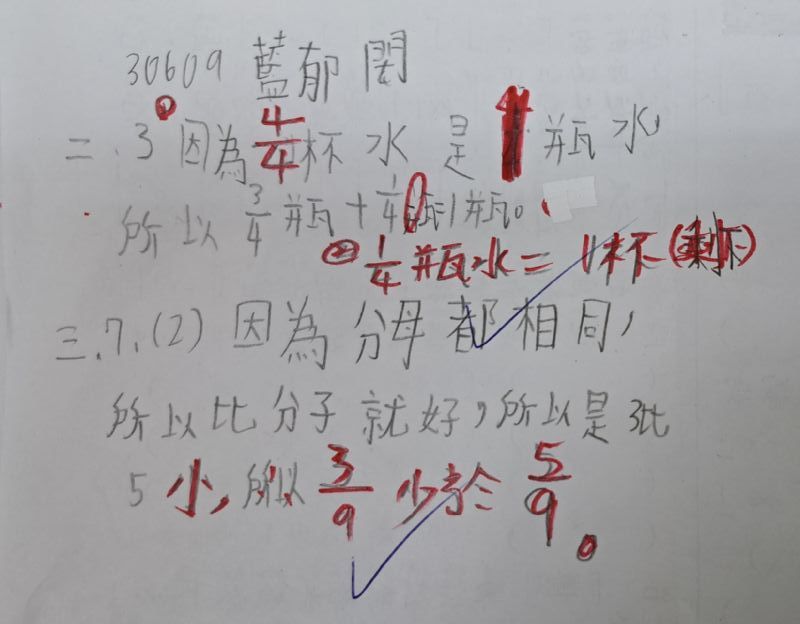 30609 藍郁閔
二.3 因為4/4杯水是1瓶水,
所以3/4瓶+1/4瓶=1瓶。
1/4瓶水=1杯(剩下)
三.7.(2)因為分母都相同,
所以比分子就好,所以是3比
5小,所以3/9少於5/9。